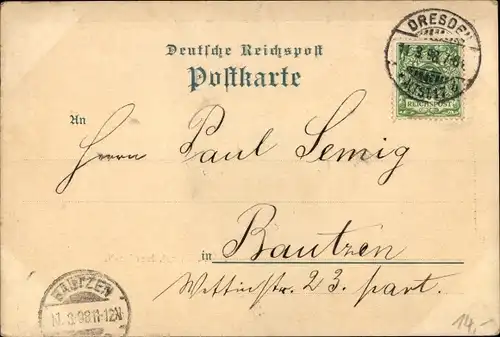 DRESDEN
Deutsche Reichspost
Postkarte
REICHSPOST
An
Herrn Paul Semig
in Bautzen
Wettinstr. 23. part.
BAUTZEN
17. 3. 98 11-12V
14,-